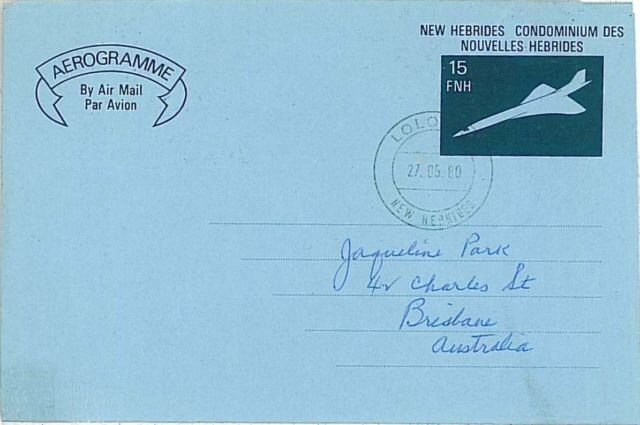 NEW HEBRIDES CONDOMINIUM DES
NOUVELLES HEBRIDES
AEROGRAMME
By Air Mail
Par Avion
15
FNH
27. 05. 80
NEW HEBRIDES
Jaqueline Park
Charles St
Brisbane
Australia